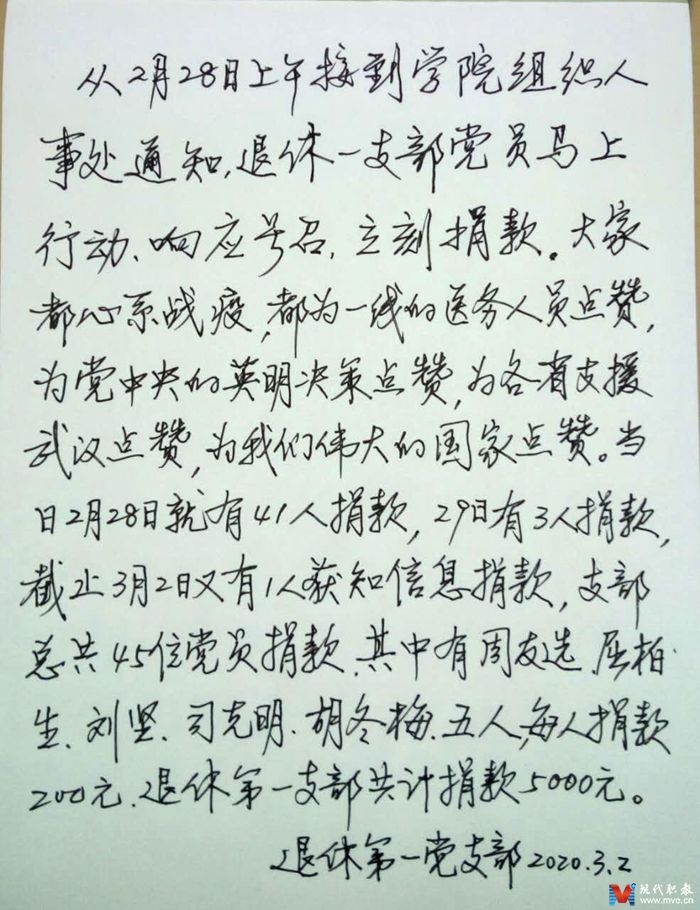 从2月28日上午接到学院组织人
事处通知,退休一支部党员马上
行动、响应号召,立刻捐款。大家
都心系战疫,都为一线的医务人员点赞,
为党中央的英明决策点赞,为各省支援
武汉点赞,为我们伟大的国家点赞。当
日2月28日就有41人捐款,29日有3人捐款,
截止3月2日又有1人获知信息捐款,支部
总共45位党员捐款.其中有周友选、屈柏
生、刘坚、司克明、胡冬梅、五人,每人捐款
200元.退休第一支部共计捐款5000元。
退休第一党支部2020.3.2
现代职教
www.mve.cn